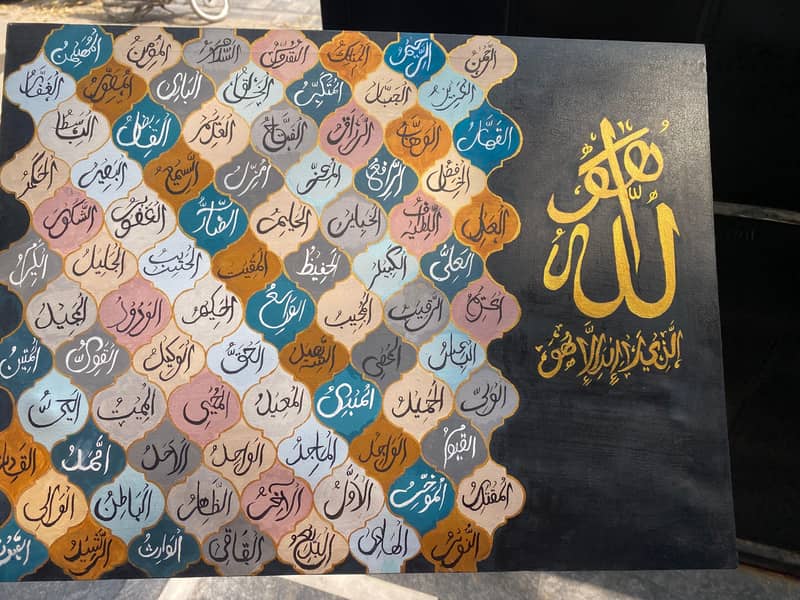 هو الله
الذي لا إله إلا هو
الرحمن الرحيم الملك القدوس السلام المؤمن المهيمن
العزيز الجبار المتكبر الخالق البارئ المصور الغفار
القهار الوهاب الرزاق الفتاح العليم القابض الباسط
الخافض الرافع المعز المذل السميع البصير الحكم
العدل اللطيف الخبير الحليم الغفور الشكور
العلي الكبير الحفيظ المقيت الحسيب الجليل الكبير
الرقيب المجيب الواسع الحكيم الودود المجيد
الباعث الشهيد الحق الوكيل القوي المتين
الولي الحميد المبدئ المعيد المحيي المميت الحي
القيوم الواجد الماجد الواحد الأحد الصمد القادر
المقتدر المؤخر الأول الآخر الظاهر الباطن الوالي
النور الهادي البديع الباقي الوارث الرشيد الصبور